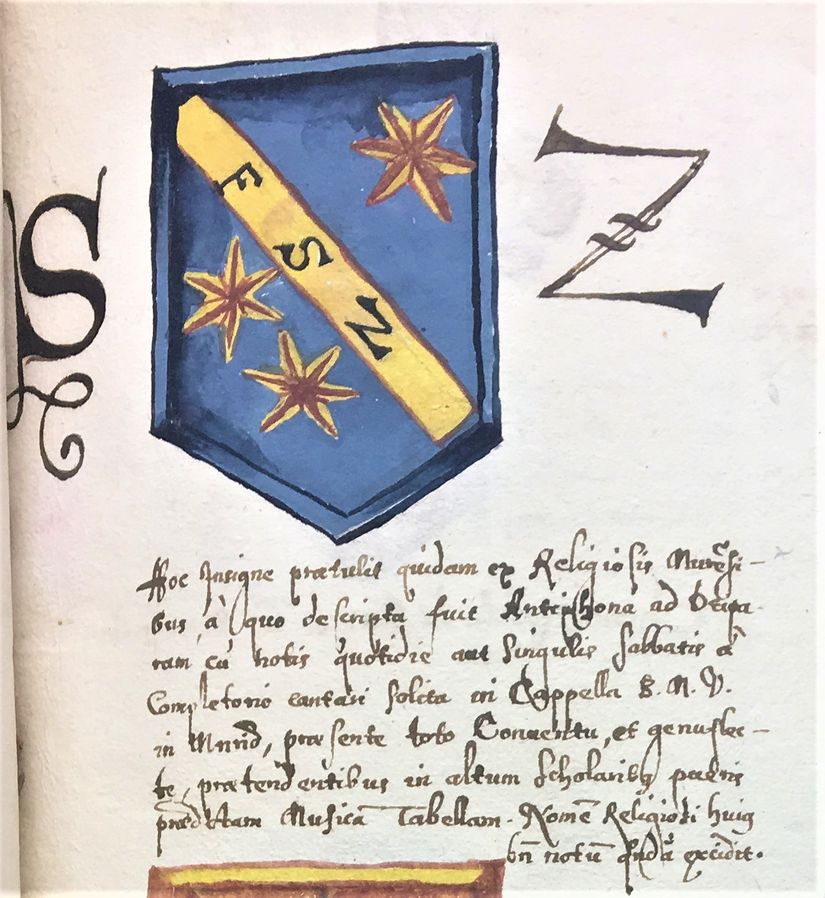 S
Z
F
S
Z
Hoc Insigne prætulit quidam ex Religiosis Murẽsi-
bus à quo descripta fuit Antiphona ad
ram cũ notis quotidie aut singulis sabbatis à
Completorio cantari solita in Cappella B. M. V.
in Murid, præsente toto Conventu, et genuflec-
te, prætendentibus in altum Scholaribg pueris
prædictam Musicã Tabellam. Nomẽ Religiosi huig
bñ notũ excidit.